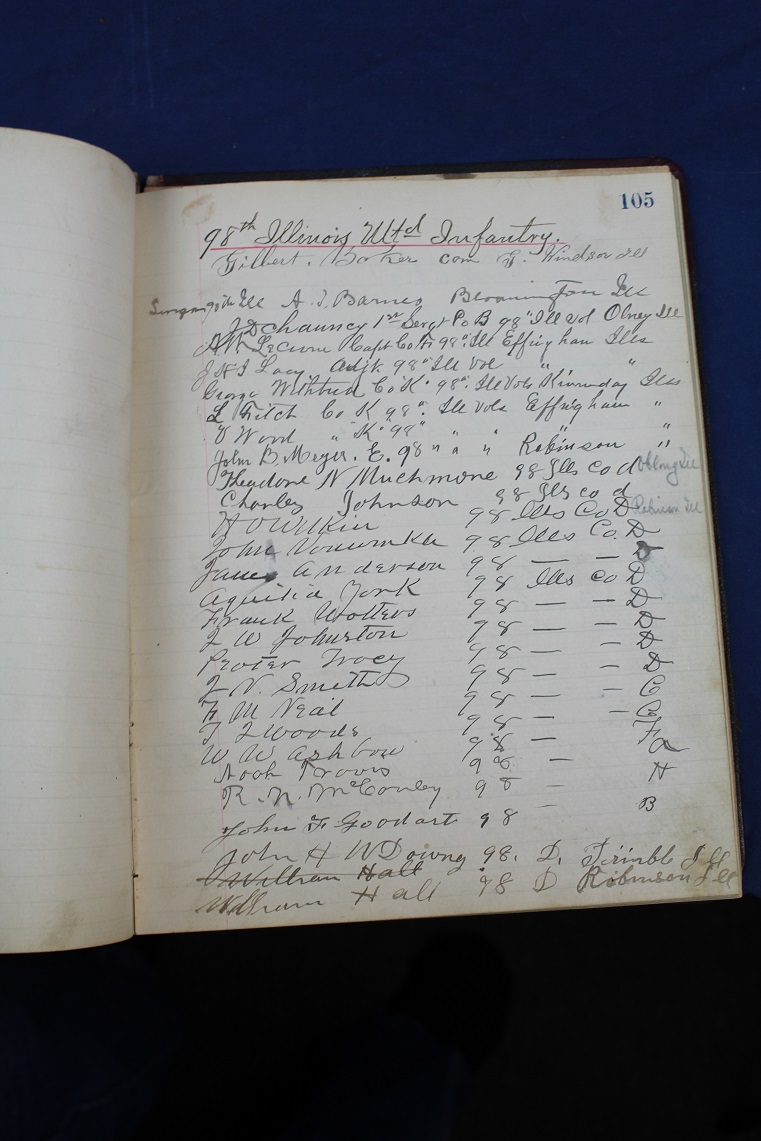 105
98th Illinois Mtd Infantry.
Gilbert. Baker com F. Windsor Ill
Surgeon 98th Ill A. J. Barnes Bloomington Ill
J D Chauncy 1st Sergt Co B 98" Ill Vol Olney Ill
A W LeCrone Capt Co 98". Ill Effingham Ills
J H J Lacy Adjt. 98" Ill Vol " "
George Co K. 98". Ill Vols Kinmundy Ills
L Fitch Co K 98". Ill Vols Effingham "
Word " K. 98" "
John B. Meyer. E. 98 " " " Robinson "
Theodore N Muchmore 98 Ills Co d Oblong Ill
Charley Johnson 98 Ills co d
H O Wilkin 98 Ills Co D Robinson Ill
John 98 Ills Co. D
James Anderson 98 — — D
Aquilla York 98 Ills Co D
Frank Wolters 98 — — D
J W Johnston 98 — — D
Tracy 98 — — D
J. N. Smith 98 — — D
F M Neal 98 — — C
T J Woods 98 — — C
W W Ashbow 98 — F
Noah Travis 98 —
R. N. McConley 98 — H
John F Goodart 98 B
John H W Downy 98. D. Trimble Ill
William Hall
William Hall 98 D Robinson Ill